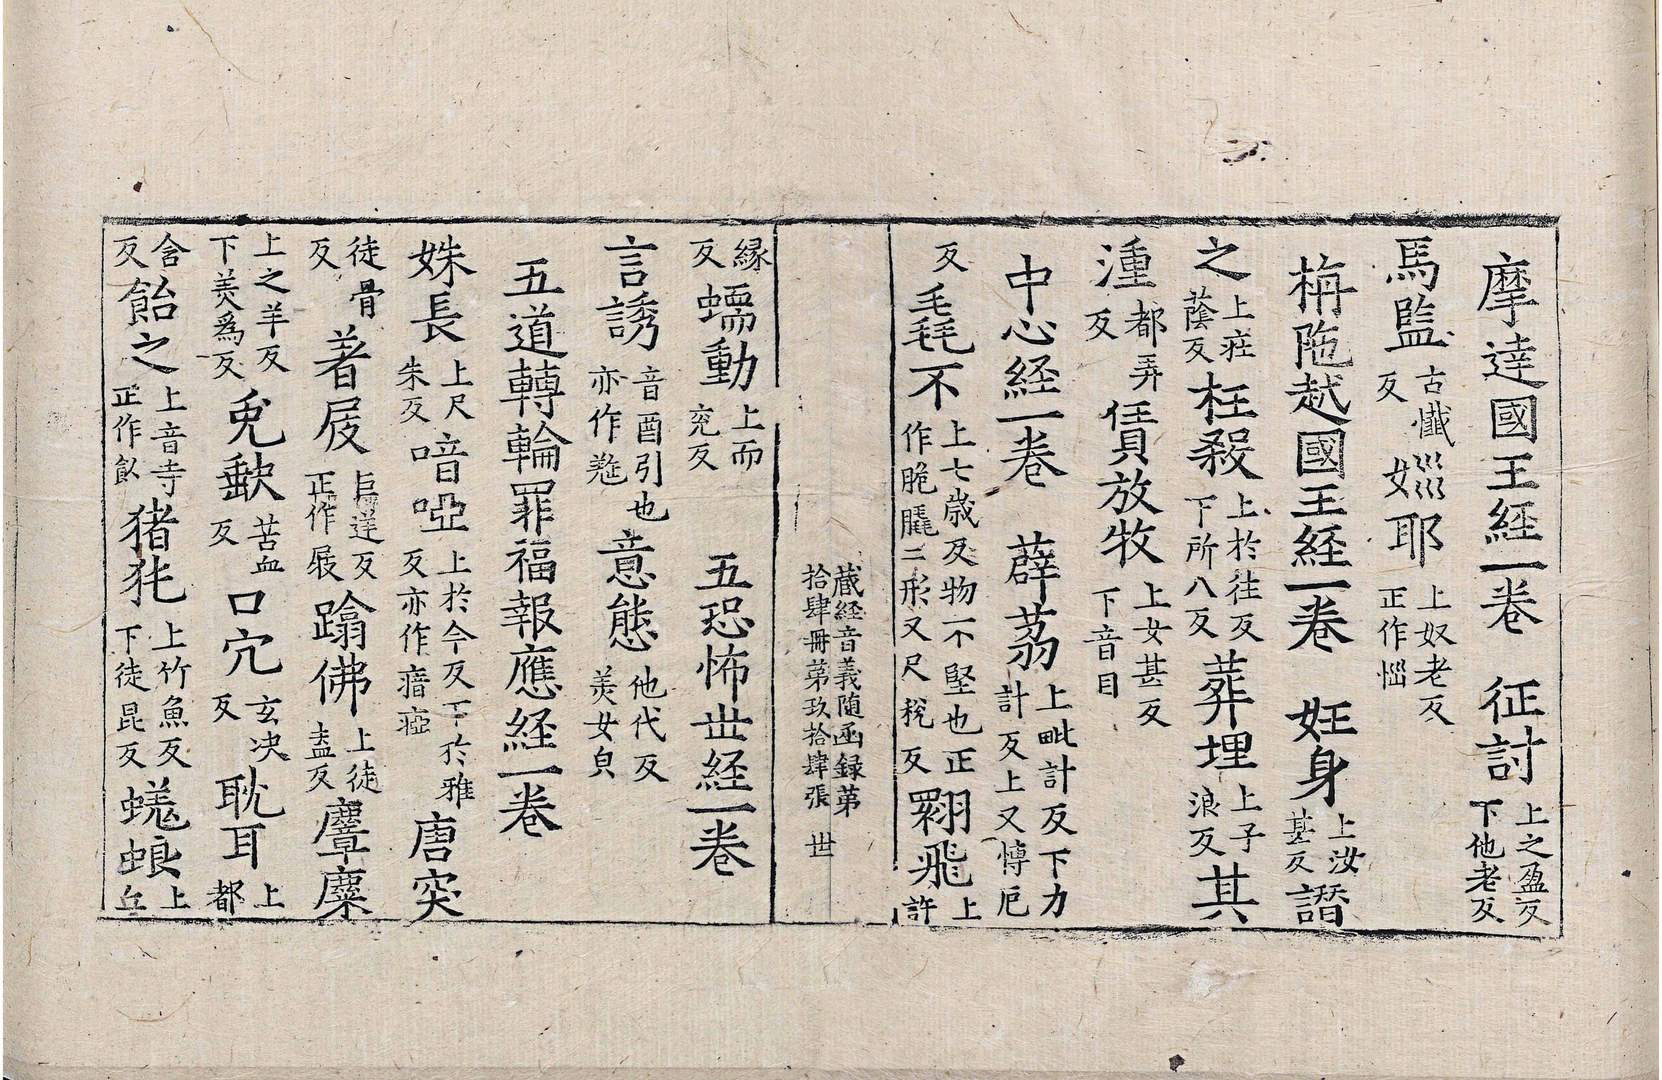 摩達國王経一卷　征討上之盈反下他老反
馬監古懺反㛴耶上奴老反正作惱
栴陁越國王経一卷　妊身上汝甚反譖
之上莊蔭反枉殺上於往反下所八反葬埋上子浪反其
湩都弄反賃放牧上女甚反下音目
中心経一卷　薜荔上毗計反下力計反上又愽厄
反毛毳不上七歳反物不堅也正作脆膬二形又尺稅反翾飛上許
蔵経音義随函録第拾肆冊第玖拾肆張　世
縁反蠕動上而兖反　五恐怖世経一卷
言誘音酉引也亦作羑意態他代反羙女皃
五道轉輪罪福報應経一卷
姝長上尺朱反喑啞上於今反下於雅反亦作瘖瘂唐突
徒骨反著屐巨逆反正作屐蹹佛上徒盍反麞麋
上之羊反下羙爲反兎缺苦血反口宂玄决反耽耳上都
含反飴之上音寺正作飤猪㹠上竹魚反下徒昆反蜣蜋上丘